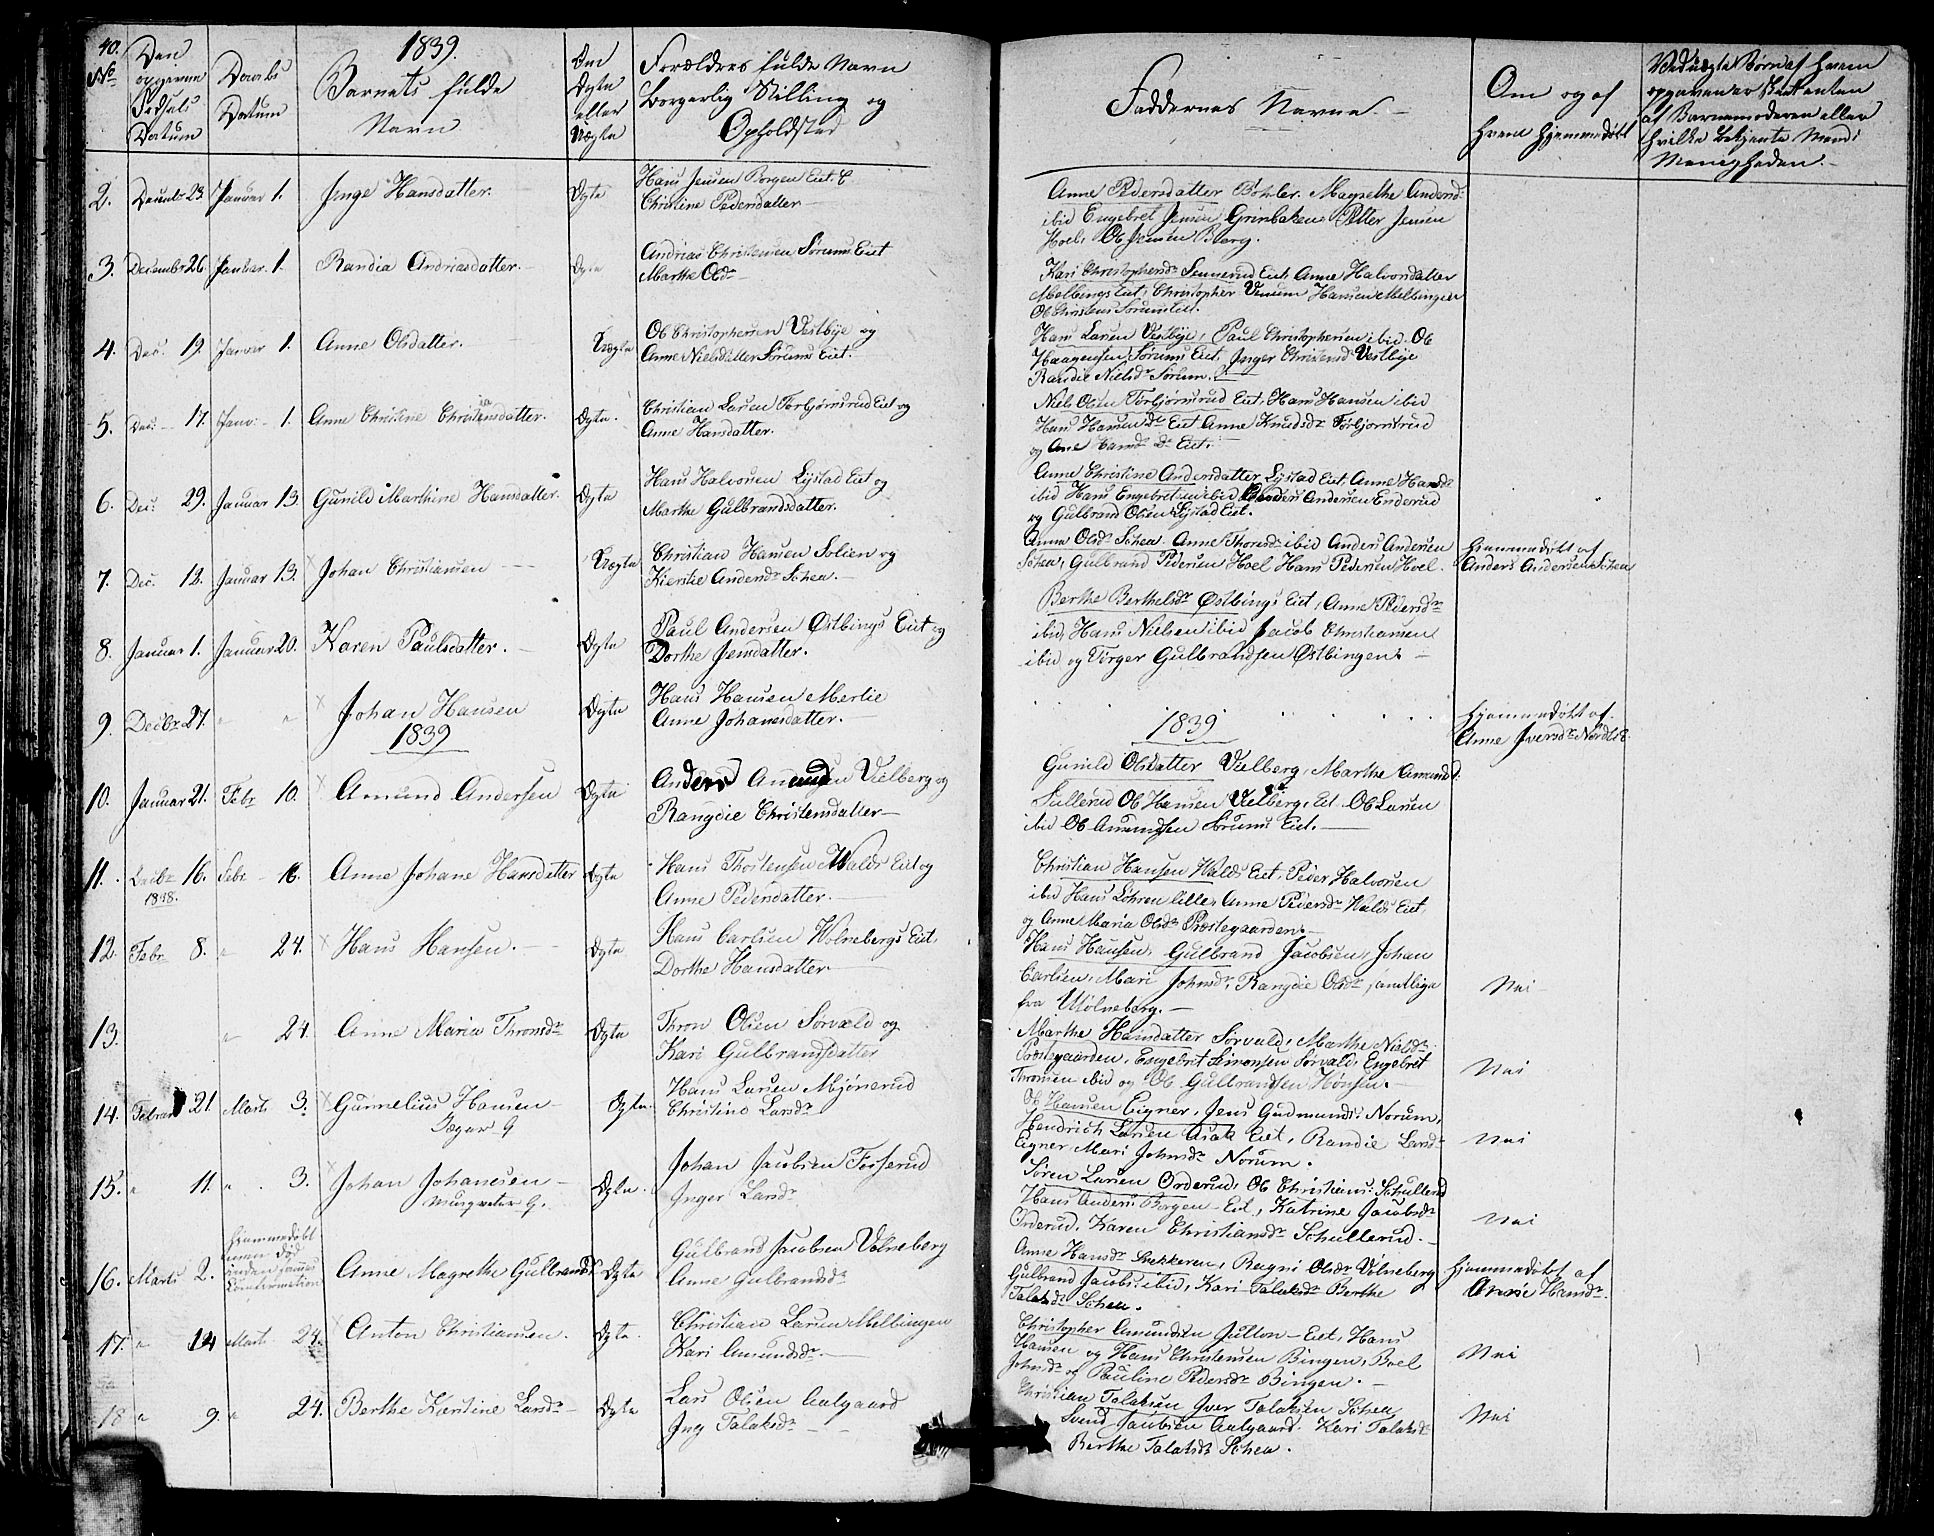 40.
1839.
No
Den opgivne Fødsels Datum
Daabs Datum
Barnets fulde Navn
Om Ægte eller Uægte
Forældres fulde Navn Borgerlig Stilling og Opholdsted
Faddernes Navne.
Om og af hvem hjemmedøbt
Ved uægte Børn af hvem opgaven er skeet enten af Barnemoderen eller hvilke bekjente Mænd i Menigheden.
2. Decmb 23. Januar 1. Inge Hansdatter. Ægte
Hans Jensen Borgen Eiet
Christine Pedersdatter
Anne Pedersdatter Bøhler. Magrethe Andersd
ibid Engebret Jensen Grinbaken Peller Jensen
Hoel, Ole Jensen Berg.
3. Decembr 26. Januar 1. Randia Andriasdatter. Ægte
Andrias Christensen Sørums Eiet
Marthe Olsdr
Kari Christophersdr Sennerud Eiet, Anne Halvorsdatter
Melbings Eiet, Christopher Hansen Melbingen
Ole Christens Sørums Eiet.
4. Dec. 19. Januar 1. Anne Olsdatter. Uægte
Ole Christophersen Vestbye og
Anne Nielsdatter Sørums Eiet.
Hans Larsen Vestbye, Paul Christophersen ibid. Ole
Haagensen Sørums Eiet, Inger Christensd Vestbye
Randie Nielsdr Sørum.
5. Dec. 17. Janr. 1. Anne Christine Christiansdatter. Ægte.
Christian Larsen Torbjørnsrud Eiet og
Anne Hansdatter.
Niels Olsen Torbjørnsrud Eiet, Hans Hansen ibid
Hans Hansen Do Eiet Anne Knudsdr Torbjørnsrud
og Ane Hansdr Do Eiet.
6. Dec. 29. Januar 13. Gunild Marthine Hansdatter. Ægte
Hans Halvorsen Lystad Eiet og
Marthe Gulbrandsdatter.
Anne Christine Andersdatter Lystad Eiet, Anne Hansdr
ibid Hans Engebretsen ibid Anders Andersen Enderud
og Gulbrand Olsen Lystad Eiet.
7. Dec. 12. Januar 13. Johan Christiansen Uægte
Christian Hansen Solien og
Kierstie Andersdr Schea.
Anna Olsdr Schea. Anne Thorsdr ibid Anders Andersen
Schea, Gulbrand Pedersen Hoel Hans Pedersen Hoel.
hjemmedøbt af
Anders Andersen Schea
8. Januar 1. Januar 20. Karen Paulsdatter. Ægte
Paul Andersen Østbings Eiet og
Dorthe Jensdatter.
Berthe Berthelsdr Østbings Eiet, Anne Pedersdr
ibid, Hans Nielsen ibid Jacob Christiansen
ibid og Virger Gulbrandsen Østbingen.
9. Decbr 27. " " Johan Hansen Ægte
Hans Hansen Merlie
Anne Johansdatter.
hjemmedøbt af
Anne Iversdr Nordlie
1839
1839
10. Januar 21. Febr 10. Amund Andersen Ægte
Anders Amundsen Vielberg og
Rangdie Christensdatter
Gunild Olsdatter Vielberg, Marthe Amundsd.
Sullerud Ole Hansen Vielberg, Eiet. Ole Larsen
ibid Ole Amundsen Sørums Eiet.
11. Decbr 16. 1838. Febr. 16. Anne Johane Hansdatter Ægte
Hans Thostensen Walds Eiet og
Anne Pedersdatter.
Christian Hansen Walds Eiet, Peder Halvorsen
ibid Hans Løhren lille, Anne Pedersdr Walds Eiet
og Anne Maria Olsdr Præstegaarden.
12. Febr 8. " 24. Hans Hansen. Ægte
Hans Carlsen Wolnebergs Eiet,
Dorthe Hansdatter
Hans Hansen, Gulbrand Jacobsen, Johan
Carlsen, Mari Johnsdr, Rangdie Olsdr, samtlige
fra Wolneberg.
Nei
13. " 24. Anne Maria Thronsdr Ægte
Thron Olsen Sorvald og
Kari Gulbrandsdatter
Marthe Hansdatter Sorvald, Marthe Nielsdr
Præstegaarden, Engebret Simonsen Sorvald, Engebret
Thronsen ibid og Ole Gulbrandsen Hønsen.
Nei
14. Februar 21. Marts 3. Gurnelius Hansen Ægte.
Hans Larsen Mjønerud
Christine Larsdr
Ole Hansen Eigner, Jens Gudmunds: Norum,
Hendrich Larsen Asak Eiet, Randie Larsdr
Eigner Mari Johnsdr Norum.
Nei
15. " 11. " 3. Johan Johanesen Ægte.
Johan Jacobsen Fosserud
Inger Larsdr
Søren Larsen Orderud, Ole Christians: Schullerud
Hans Anders: Borgen Eiet, Katrine Jacobsdr
Orderud, Karen Christiansdr Schullerud.
Nei
16. Marts 2. hjemmedøbt
men død
inden dennes
Confirmation
Anne Magrethe Gulbrandsd Ægte
Gulbrand Jacobsen Volneberg
Anne Gulbrandsdr
Anne Hansdr Bekkeren, Ragni Olsdr Volneberg
Gulbrand Jacobs: ibid, Kari Talaksdr Berthe
Talaksdr Schea.
hjemmedøbt af
Anne Hansdr.
17. " 14 Marts 24. Anton Christiansen. Ægte.
Christian Larsen Melbingen
Kari Amundsdr.
Christopher Amundsen Julton Eiet, Hans
Hansen og Hans Christensen Bingen, Boel
Johnsdr og Pauline Pedersdr Bingen.
Nei
18 " 9. " 24. Berthe Karstine Larsdr Ægte
Lars Olsen Aalgaard
Ing Talaksdr
Christian Talaksen Iver Talaksen Schea
Svend Jacobsen Aalgaard. Kari Talaksdr
Berthe Talaksdr Schea.
Nei